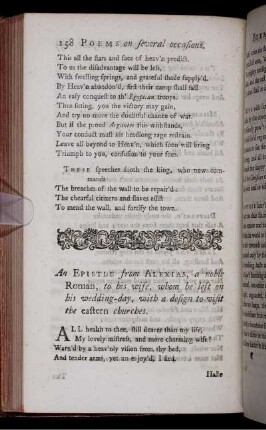 158 POEMS on several occasions.
This all the stars and face of heav'n predict.
To us the disadvantage will be less,
With swelling springs, and grateful shade supply'd.
By Heav'n abandon'd, first their camp shall fall
An easy conquest to th' Egyptian troops.
Thus fixing, you the victory may gain,
And try no more the doubtful chance of war.
But if the proud Assyrian
Your conduct must his headlong rage restrain.
Leave all beyond to Heav'n, which soon will bring
Triumph to you, confusion to your foes.
THESE speeches sooth the king, who now com-
mands
The breaches of the wall to be repair'd:
The chearful citizens and slaves assist
To mend the wall, and fortify the town.
An EPISTLE from ALEXIAS, a noble
Roman, to his wife, whom he left on
his wedding-day, with a design to visit
the eastern churches.
ALL health to thee, still dearer than my life,
My lovely mistress, and more charming wife!
Warn'd by a heav'nly vision from thy bed,
And tender arms, yet un enjoy'd, I fled.
Haste